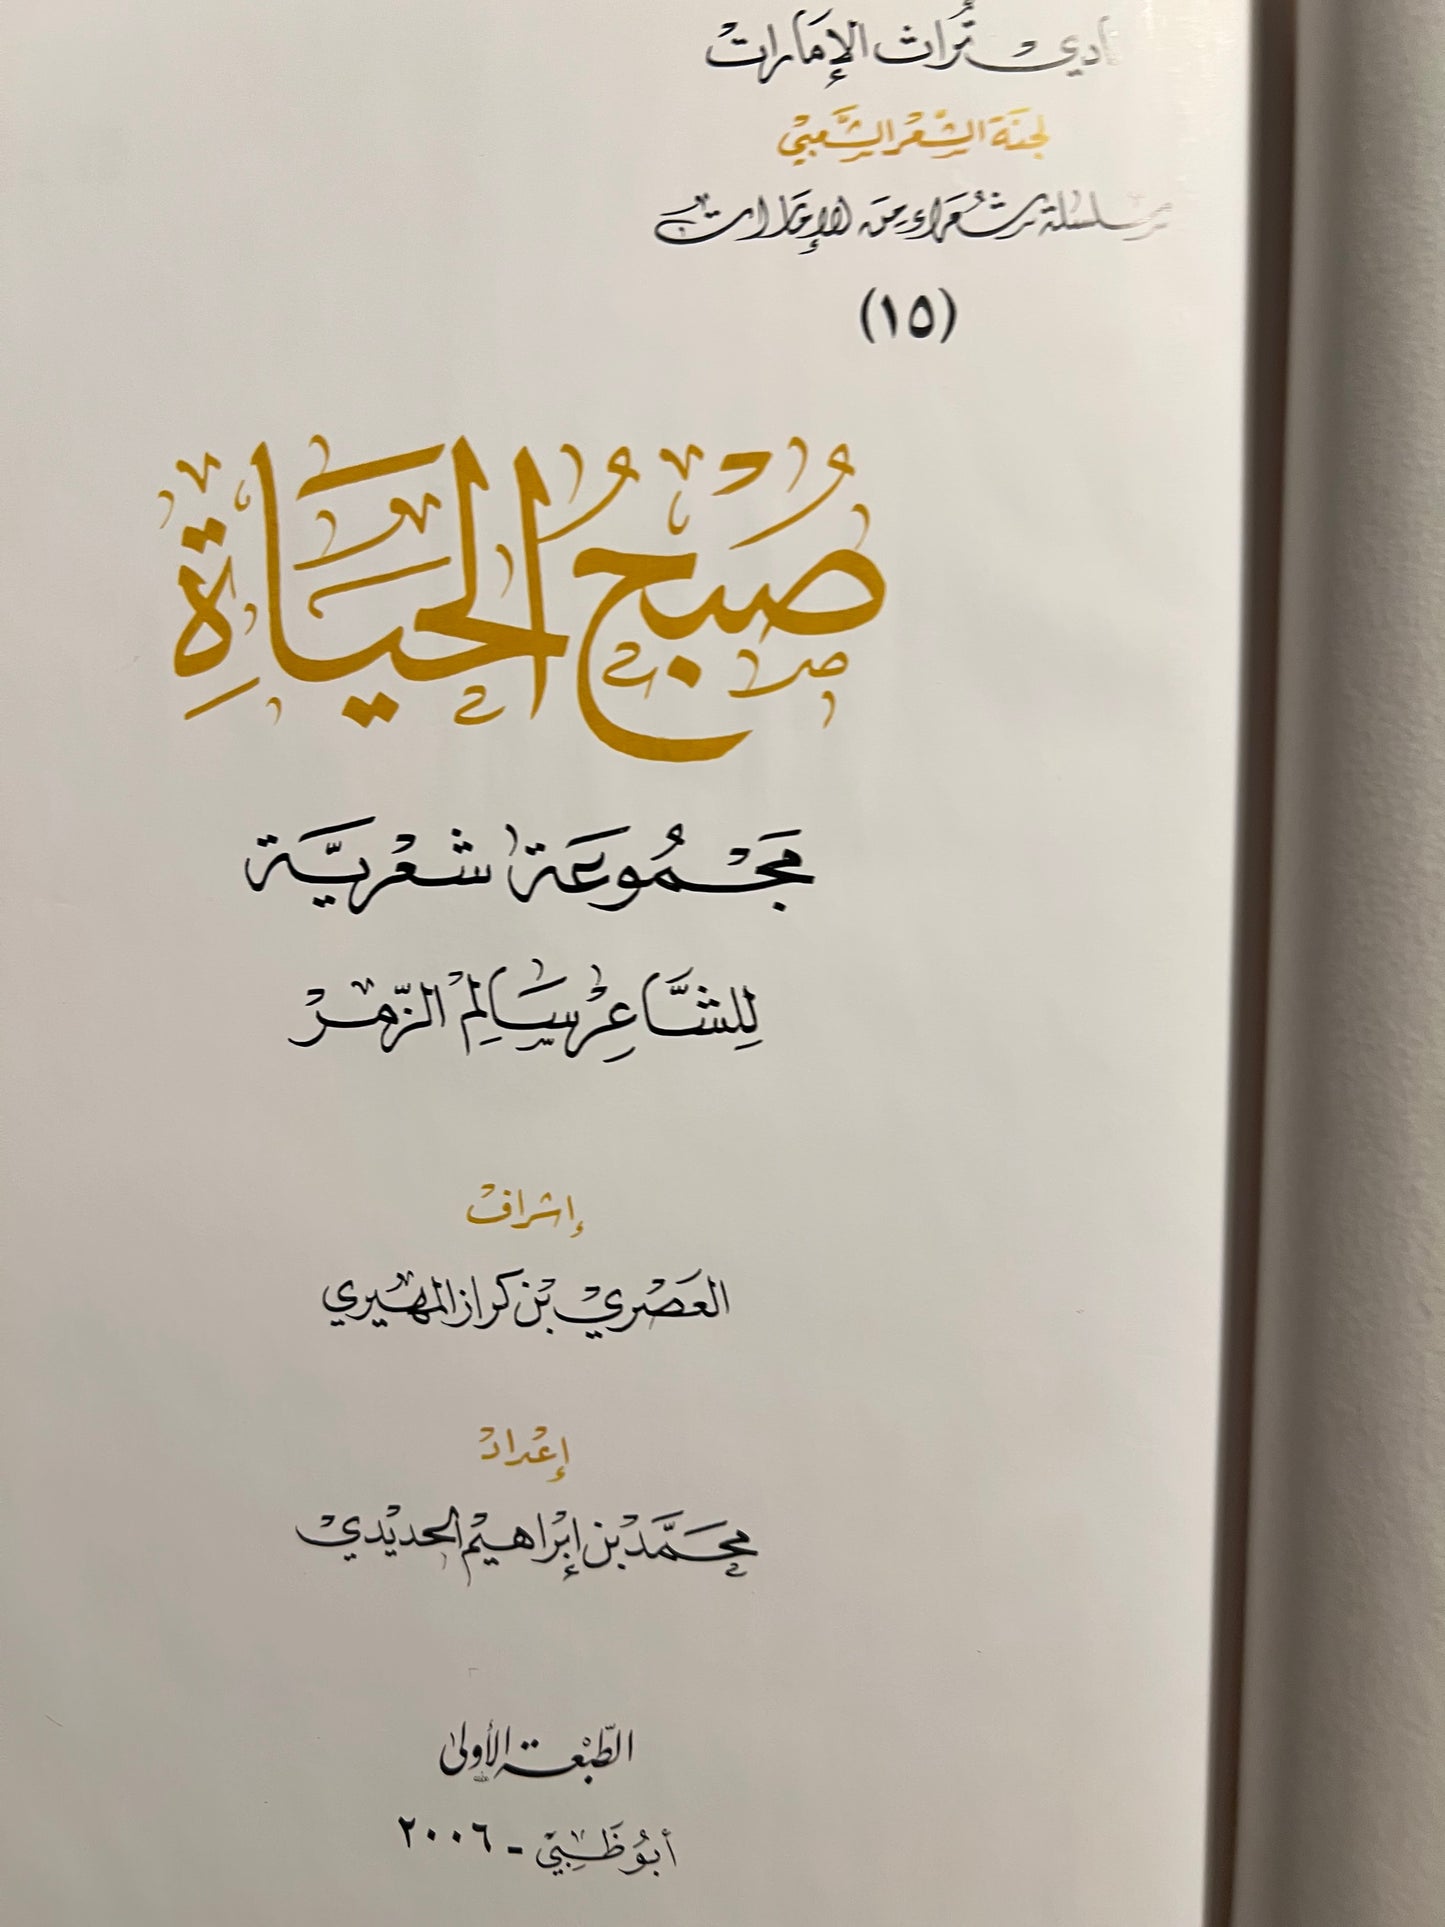 نادي تُراث الإمَارات
لجنَة الشِّعْر الشَّعبيْ
سلسلة شُعَراء من الإمَارات
(١٥)
صُبْحُ الحَيَاةِ
مَجْمُوعَة شعْريَّة
لِلشَّاعِرْ سَالِمْ الزّمرْ
إشراف
العَصْري بْن كراز المهَيري
إعْداد
محَمَّد بْن إبْراهيمْ الحديْدي
الطّبْعة الأولىٰ
أبُوظَبيْ - ٢٠٠٦